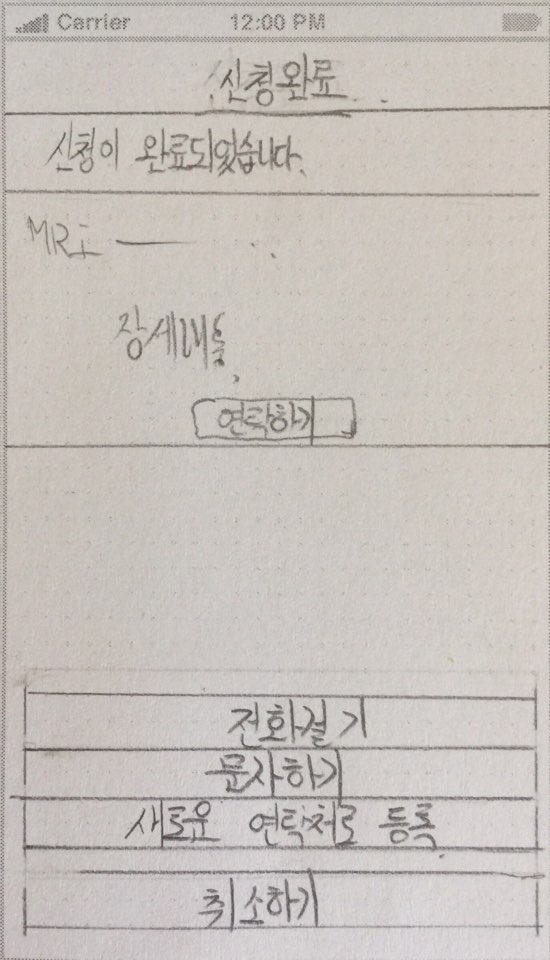 Carrier 12:00 PM
신청완료
신청이 완료되었습니다.
MRI
연락하기
전화걸기
문자하기
새로운 연락처로 등록
취소하기